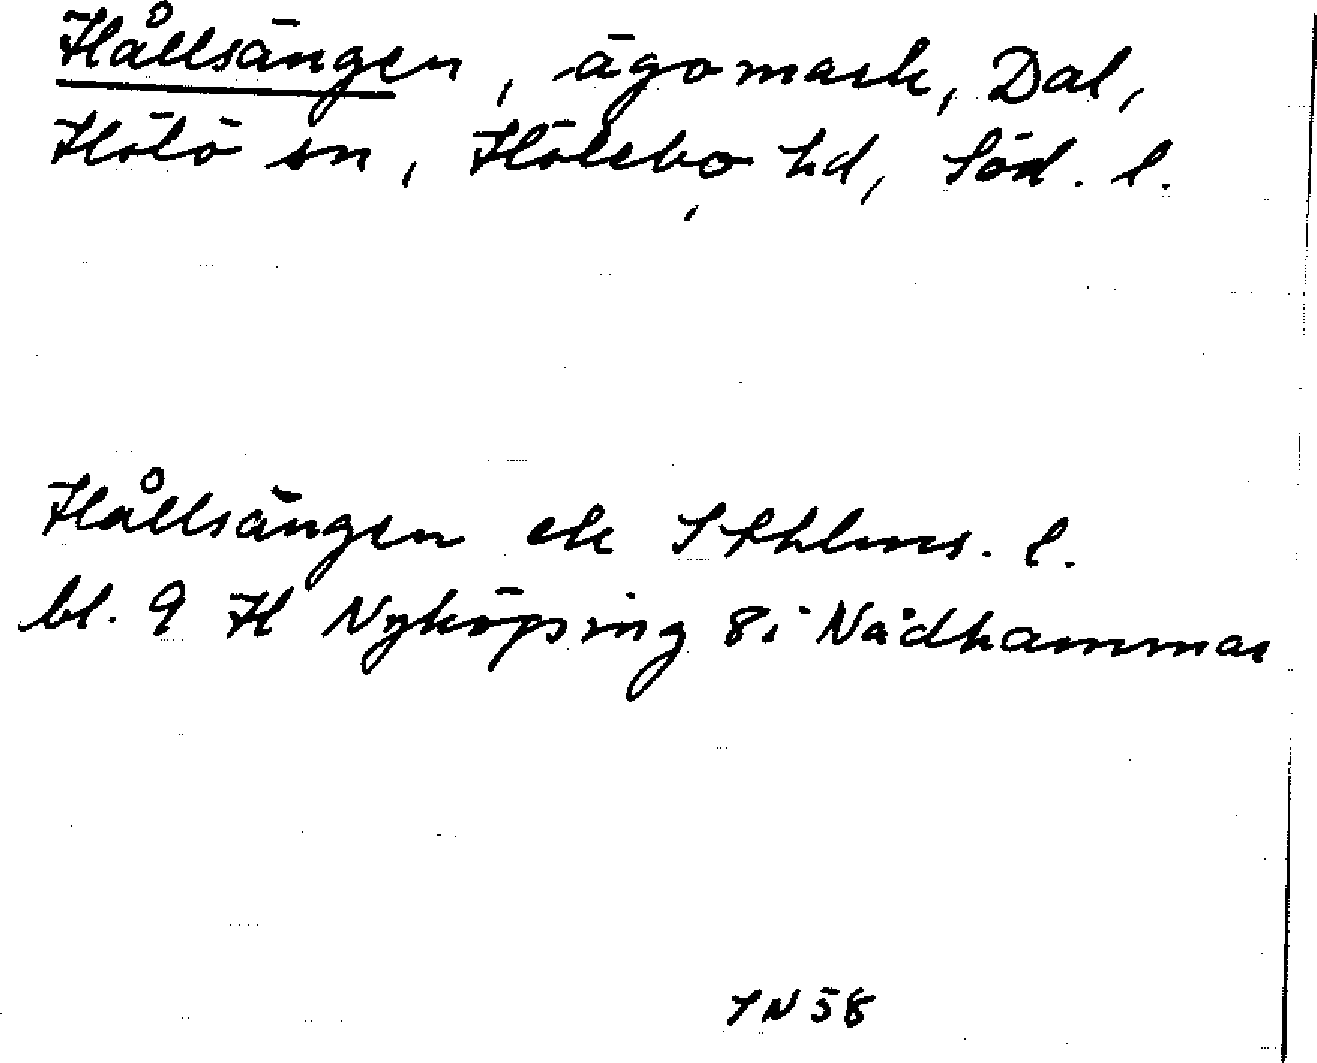 Hållsängen, ägomark, Dal,
Hölö sn, Hölebo hd, Söd. l.
Hållsängen ek Sthlms. l.
bl. 9 H Nyköping 8i Nådhammar
SN 58